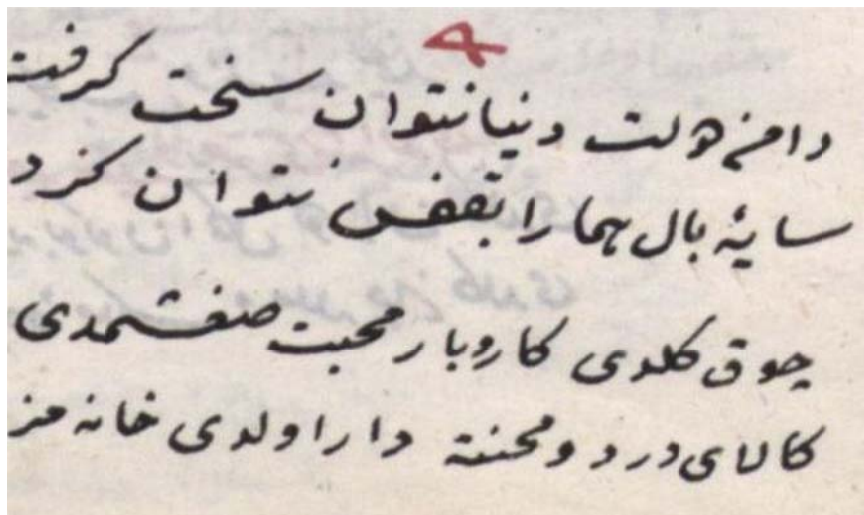 دامن دولت دنیا نتوان سخت کرفت
سایۀ بال هما را بقفس نتوان کرد
چوق کلدی کاروبار محبت صغشمدی
کالای درد و محنته دار اولدی خانه مز